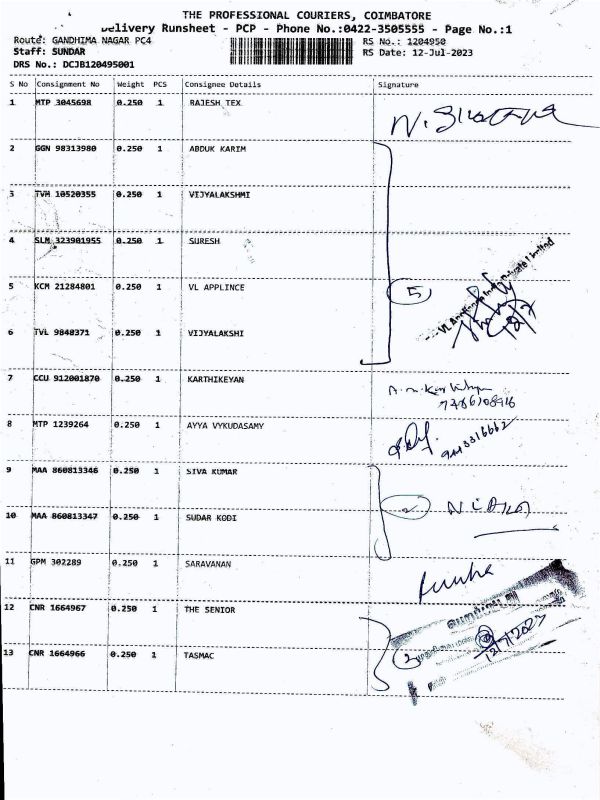 THE PROFESSIONAL COURIERS, COIMBATORE
Delivery Runsheet - PCP - Phone No.:0422-3505555 - Page No.:1
Route: GANDHIMA NAGAR PC4
RS No.: 1204950
Staff: SUNDAR
RS Date: 12-Jul-2023
DRS No.: DCJB120495001
S No Consignment No Weight PCS Consignee Details Signature
1 MTP 3045698 0.250 1 RAJESH TEX
2 GGN 98313980 0.250 1 ABDUK KARIM
3 TVM 10520355 0.250 1 VIJYALAKSHMI
4 SLM 323901955 0.250 1 SURESH
5 KCM 21284801 0.250 1 VL APPLINCE 5
6 TVL 9848371 0.250 1 VIJYALAKSHI
7 CCU 912001870 0.250 1 KARTHIKEYAN
8 MTP 1239264 0.250 1 AYYA VYKUDASAMY
9 MAA 860813346 0.250 1 SIVA KUMAR
10 MAA 860813347 0.250 1 SUDAR KODI 2
11 GPM 302289 0.250 1 SARAVANAN
12 CNR 1664967 0.250 1 THE SENIOR
12/7/2023
13 CNR 1664966 0.250 1 TASMAC 2